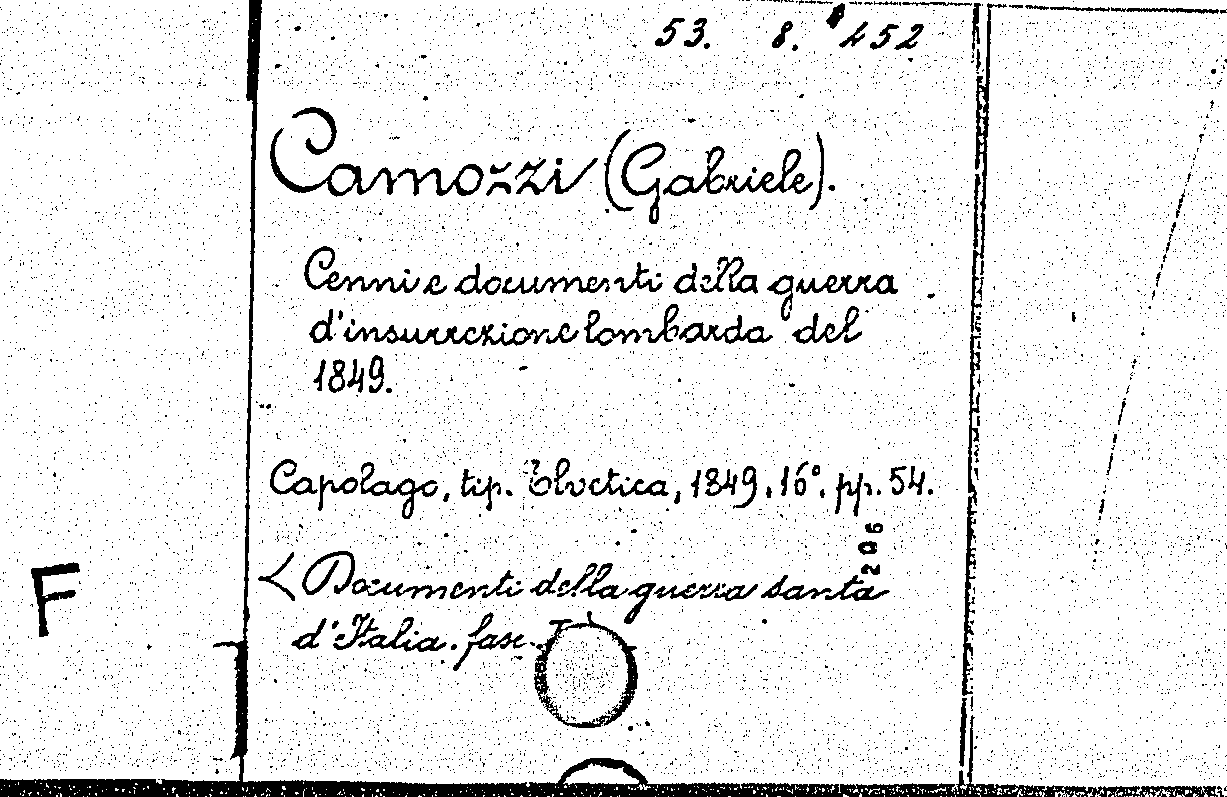 53. 8. 452
Camozzi (Gabriele).
Cenni e documenti della guerra
d'insurrezione lombarda del
1849.
Capolago, tip. Elvetica, 1849. 16°. pp. 54.
206
< Documenti della guerra santa
d'Italia. fasc.
F